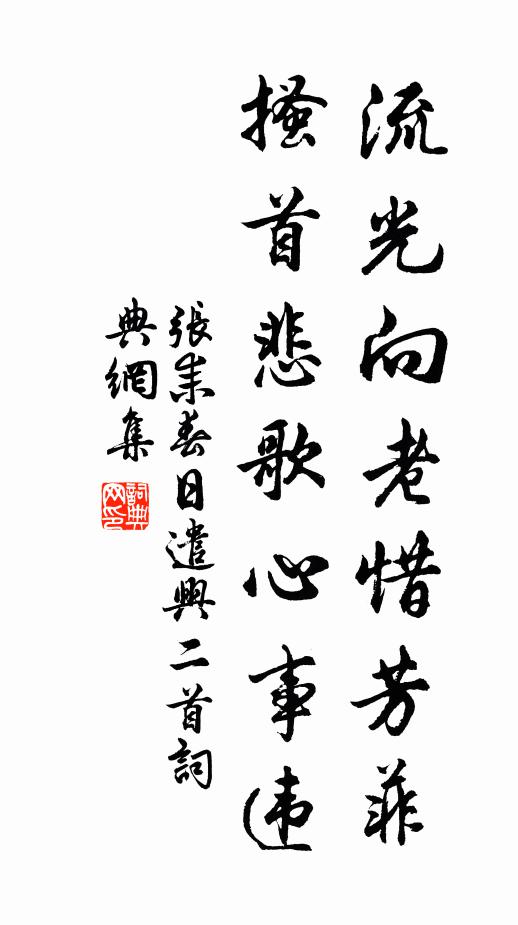 流光向老惜芳菲
搔首悲歌心事违
張耒春日遣興二首詞
典網集
詞典网印